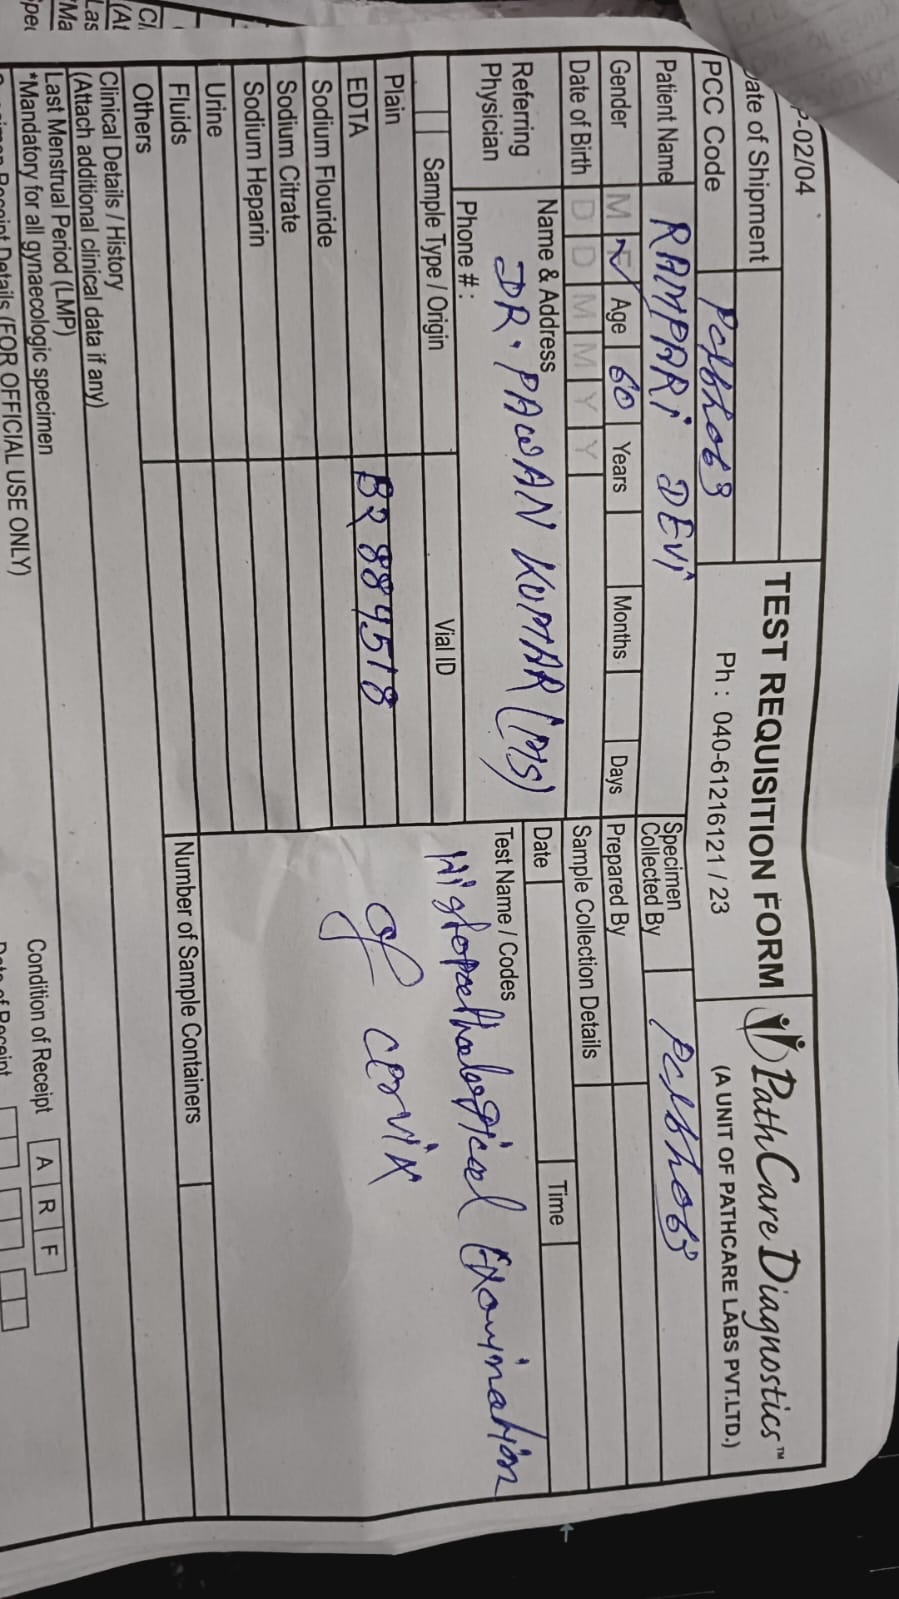 P-02/04
TEST REQUISITION FORM
PathCare Diagnostics™
Date of Shipment
Ph : 040-61216121 / 23
(A UNIT OF PATHCARE LABS PVT.LTD.)
PCC Code
Patient Name RAMPARI DEVI
Specimen Collected By
Gender M F Age 60 Years Months Days
Prepared By
Date of Birth D D M M Y Y
Sample Collection Details
Date Time
Referring Physician
Name & Address
DR. PAWAN KUMAR (MS)
Phone # :
Test Name / Codes
Histopathological Examination
of cervix
Sample Type / Origin Vial ID
Plain
EDTA
Sodium Flouride
Sodium Citrate
Sodium Heparin
Urine
Fluids
Others
Number of Sample Containers
Clinical Details / History
(Attach additional clinical data if any)
Last Menstrual Period (LMP)
*Mandatory for all gynaecologic specimen
Condition of Receipt A R F
Details (FOR OFFICIAL USE ONLY)